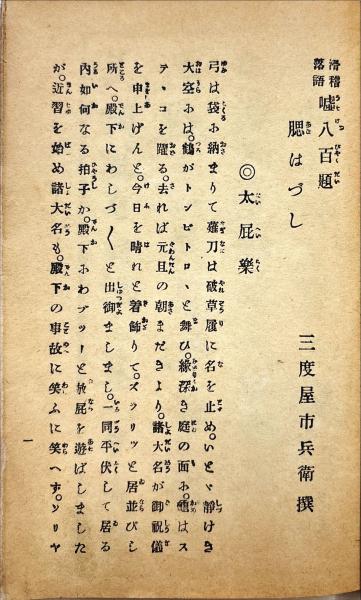 滑稽落語 噓八百題
腮はづし
三度屋市兵衛撰
◎太屁樂
弓は袋に納まりて薙刀は破草履に名を止め。いとゞ靜けき
大空には。鶴がトンビトロヽと舞ひ。綠深き庭の面には。龜はス
テヽコを躍る。去れば元旦の朝まだきより。諸大名が御祝儀
を申上げんと。今日を晴れと着飾りて。ズラリッと居並びし
所へ。殿下にわしづ〳〵と出御ましまし。一同平伏して居る
內如何なる拍子か。殿下にわブツーと放屁を遊ばしました
が。近習を始め諸大名も。殿下の事故に笑ふに笑へず。ソリヤ
一